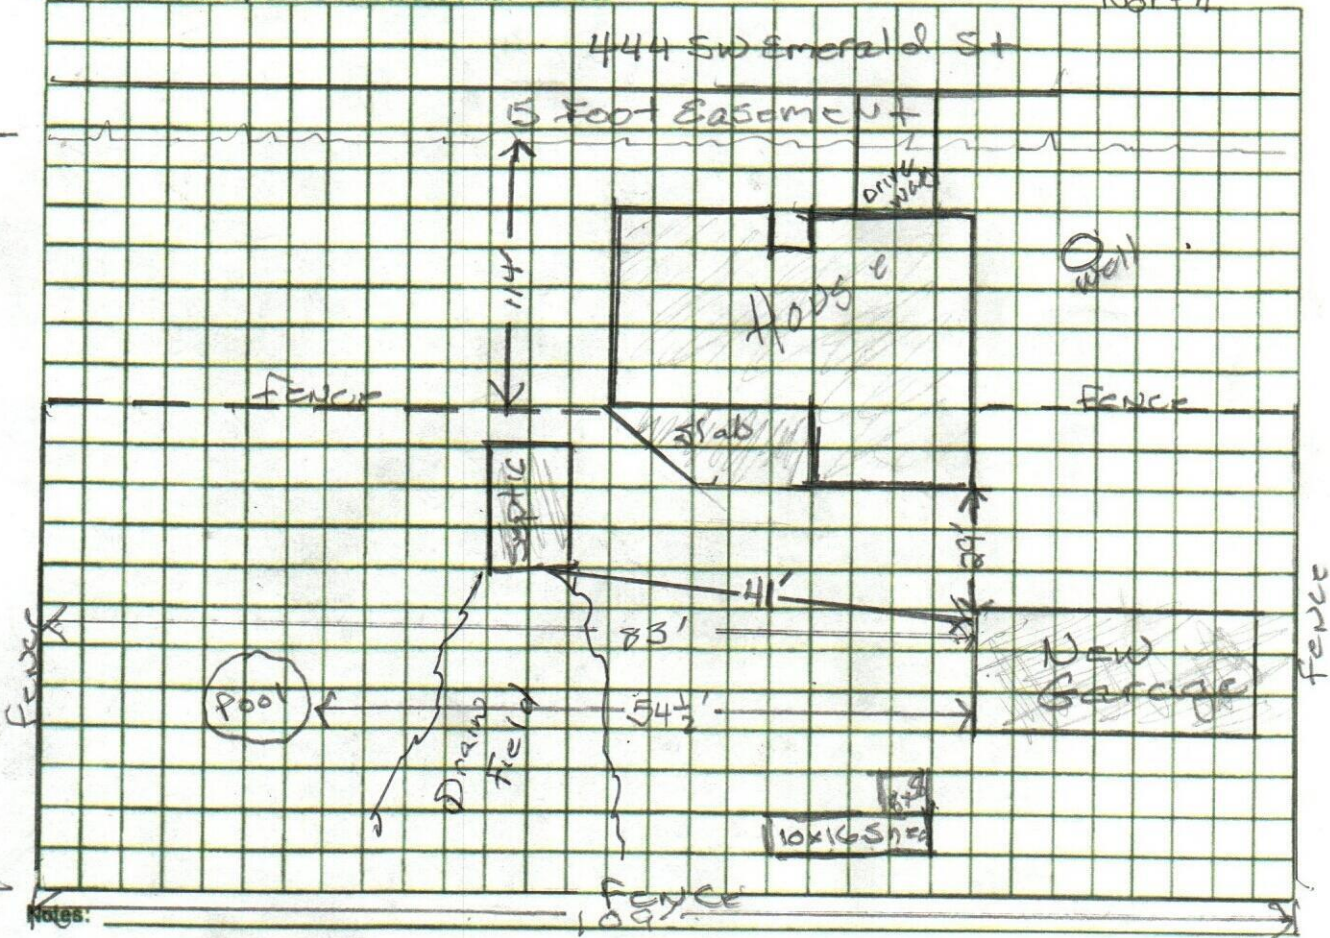 North
444 SW Emerald St
15 Foot Easement
Drive
way
114'
House
Well
Fence
Fence
Slab
Septic
29'
41'
83'
New
Garage
Fence
Fence
Pool
54½'
Drain
Field
8x8
10x16 Shed
Fence
Notes:
109'